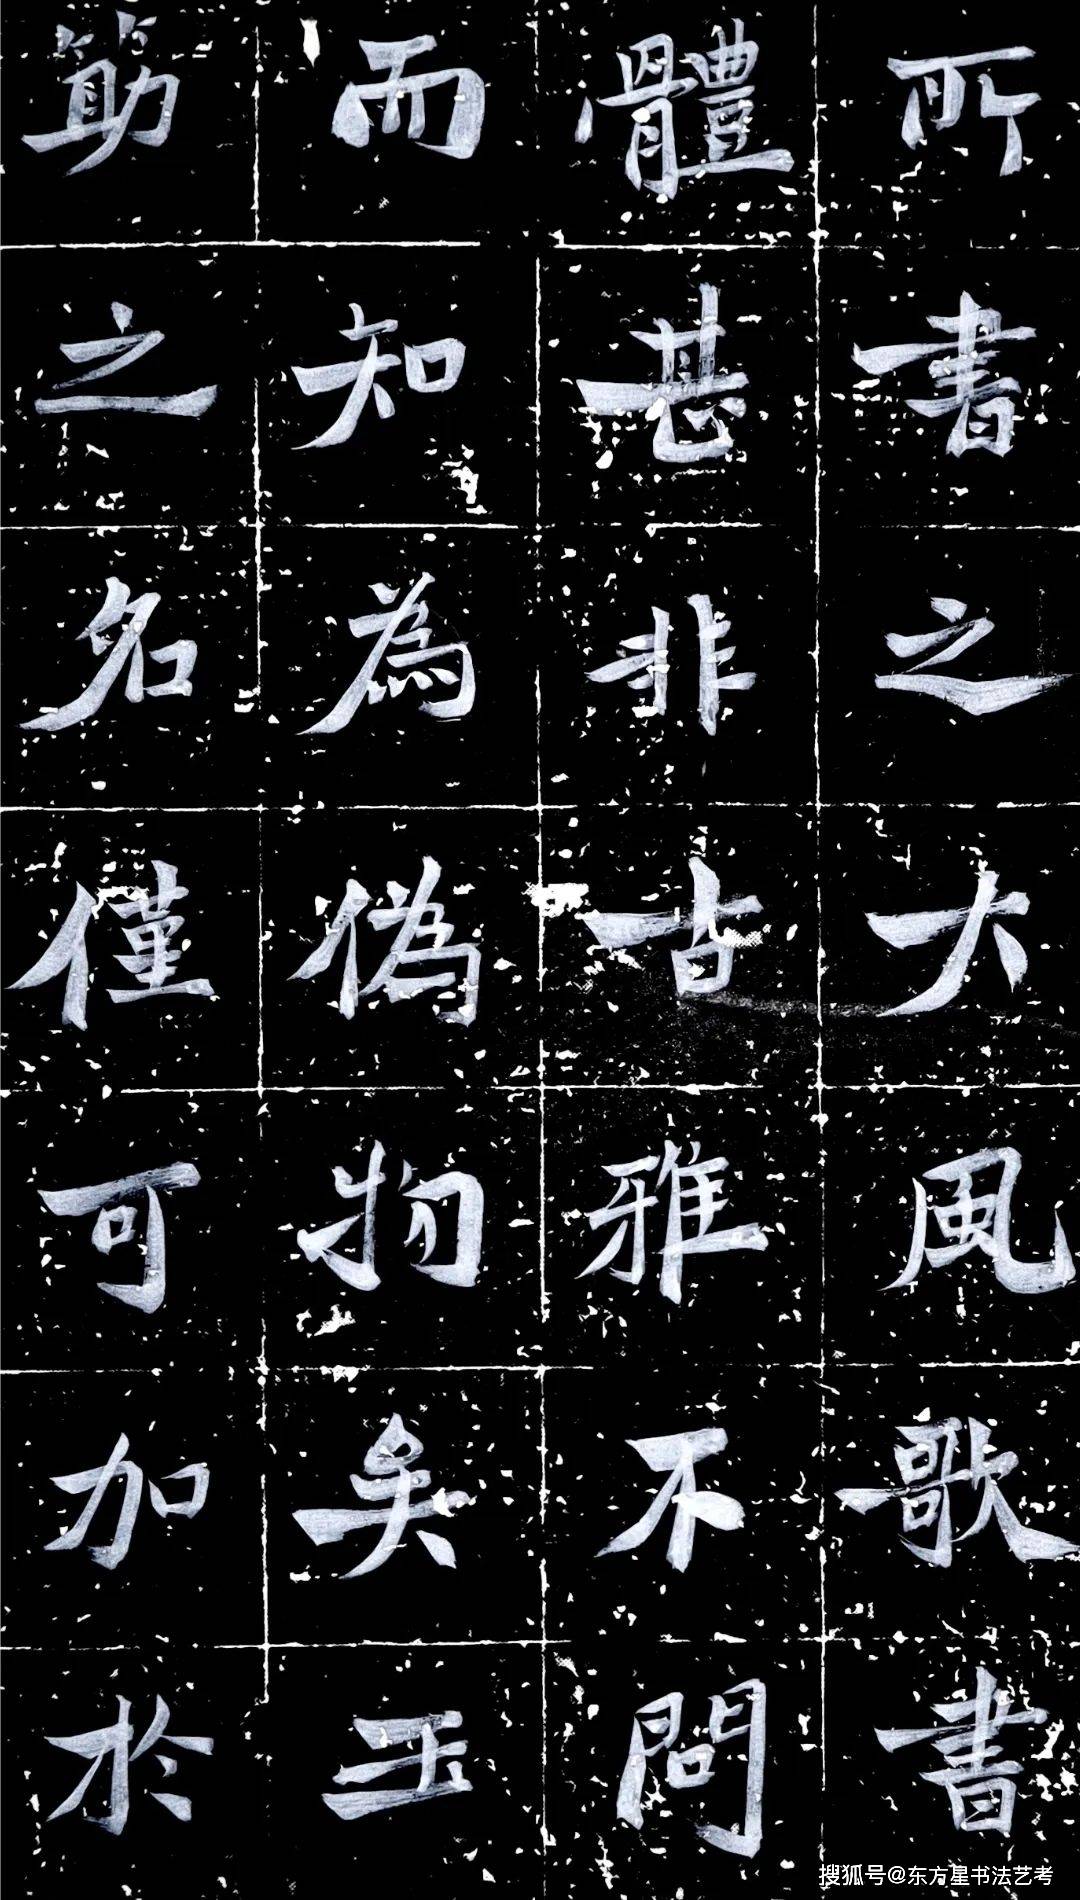 所書之大風歌書
體甚非古雅不問
而知為偽物矣玉
筯之名僅可加於
搜狐号@东方星书法艺考